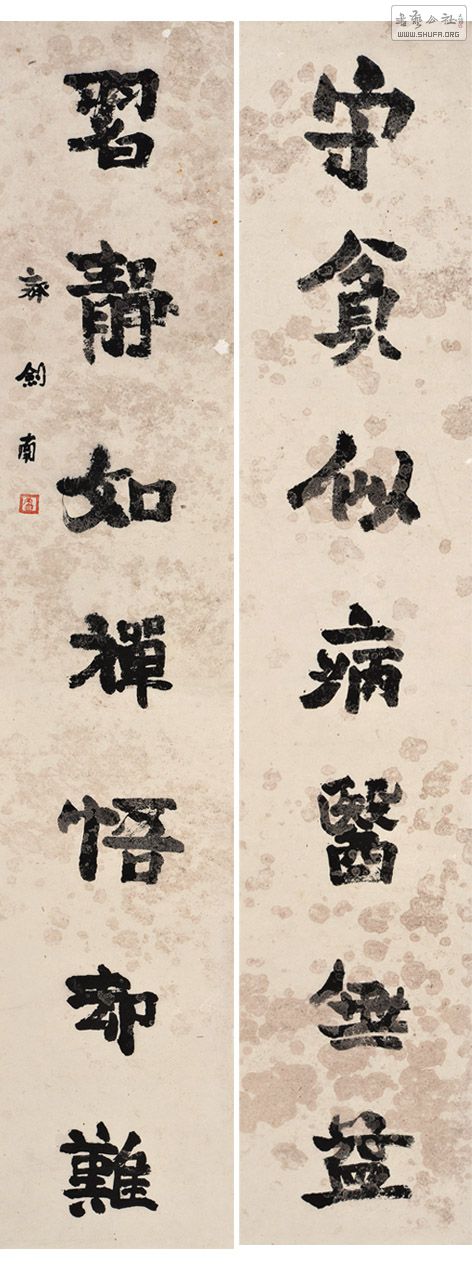 书艺公社
WWW.SHUFA.ORG
守貧似病醫無益
習靜如禪悟却難
劍南